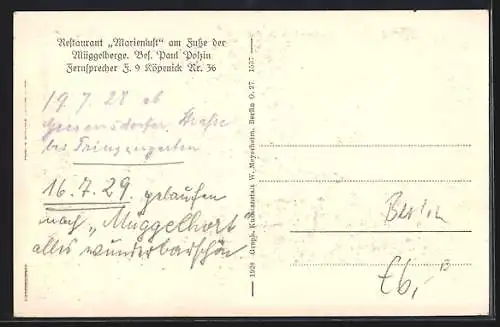 Restaurant „Marienlust“ am Fuße der
Müggelberge. Bes. Paul Polzin
Fernsprecher F. 9 Köpenick Nr. 36
19.7.28 ab
Straße
bis
16.7.29. gelaufen
nach „Müggelhort“
alles wunderbarschön
1928 Graph. Kunstanstalt W. Meyerheim, Berlin O. 27. 1537
Berlin